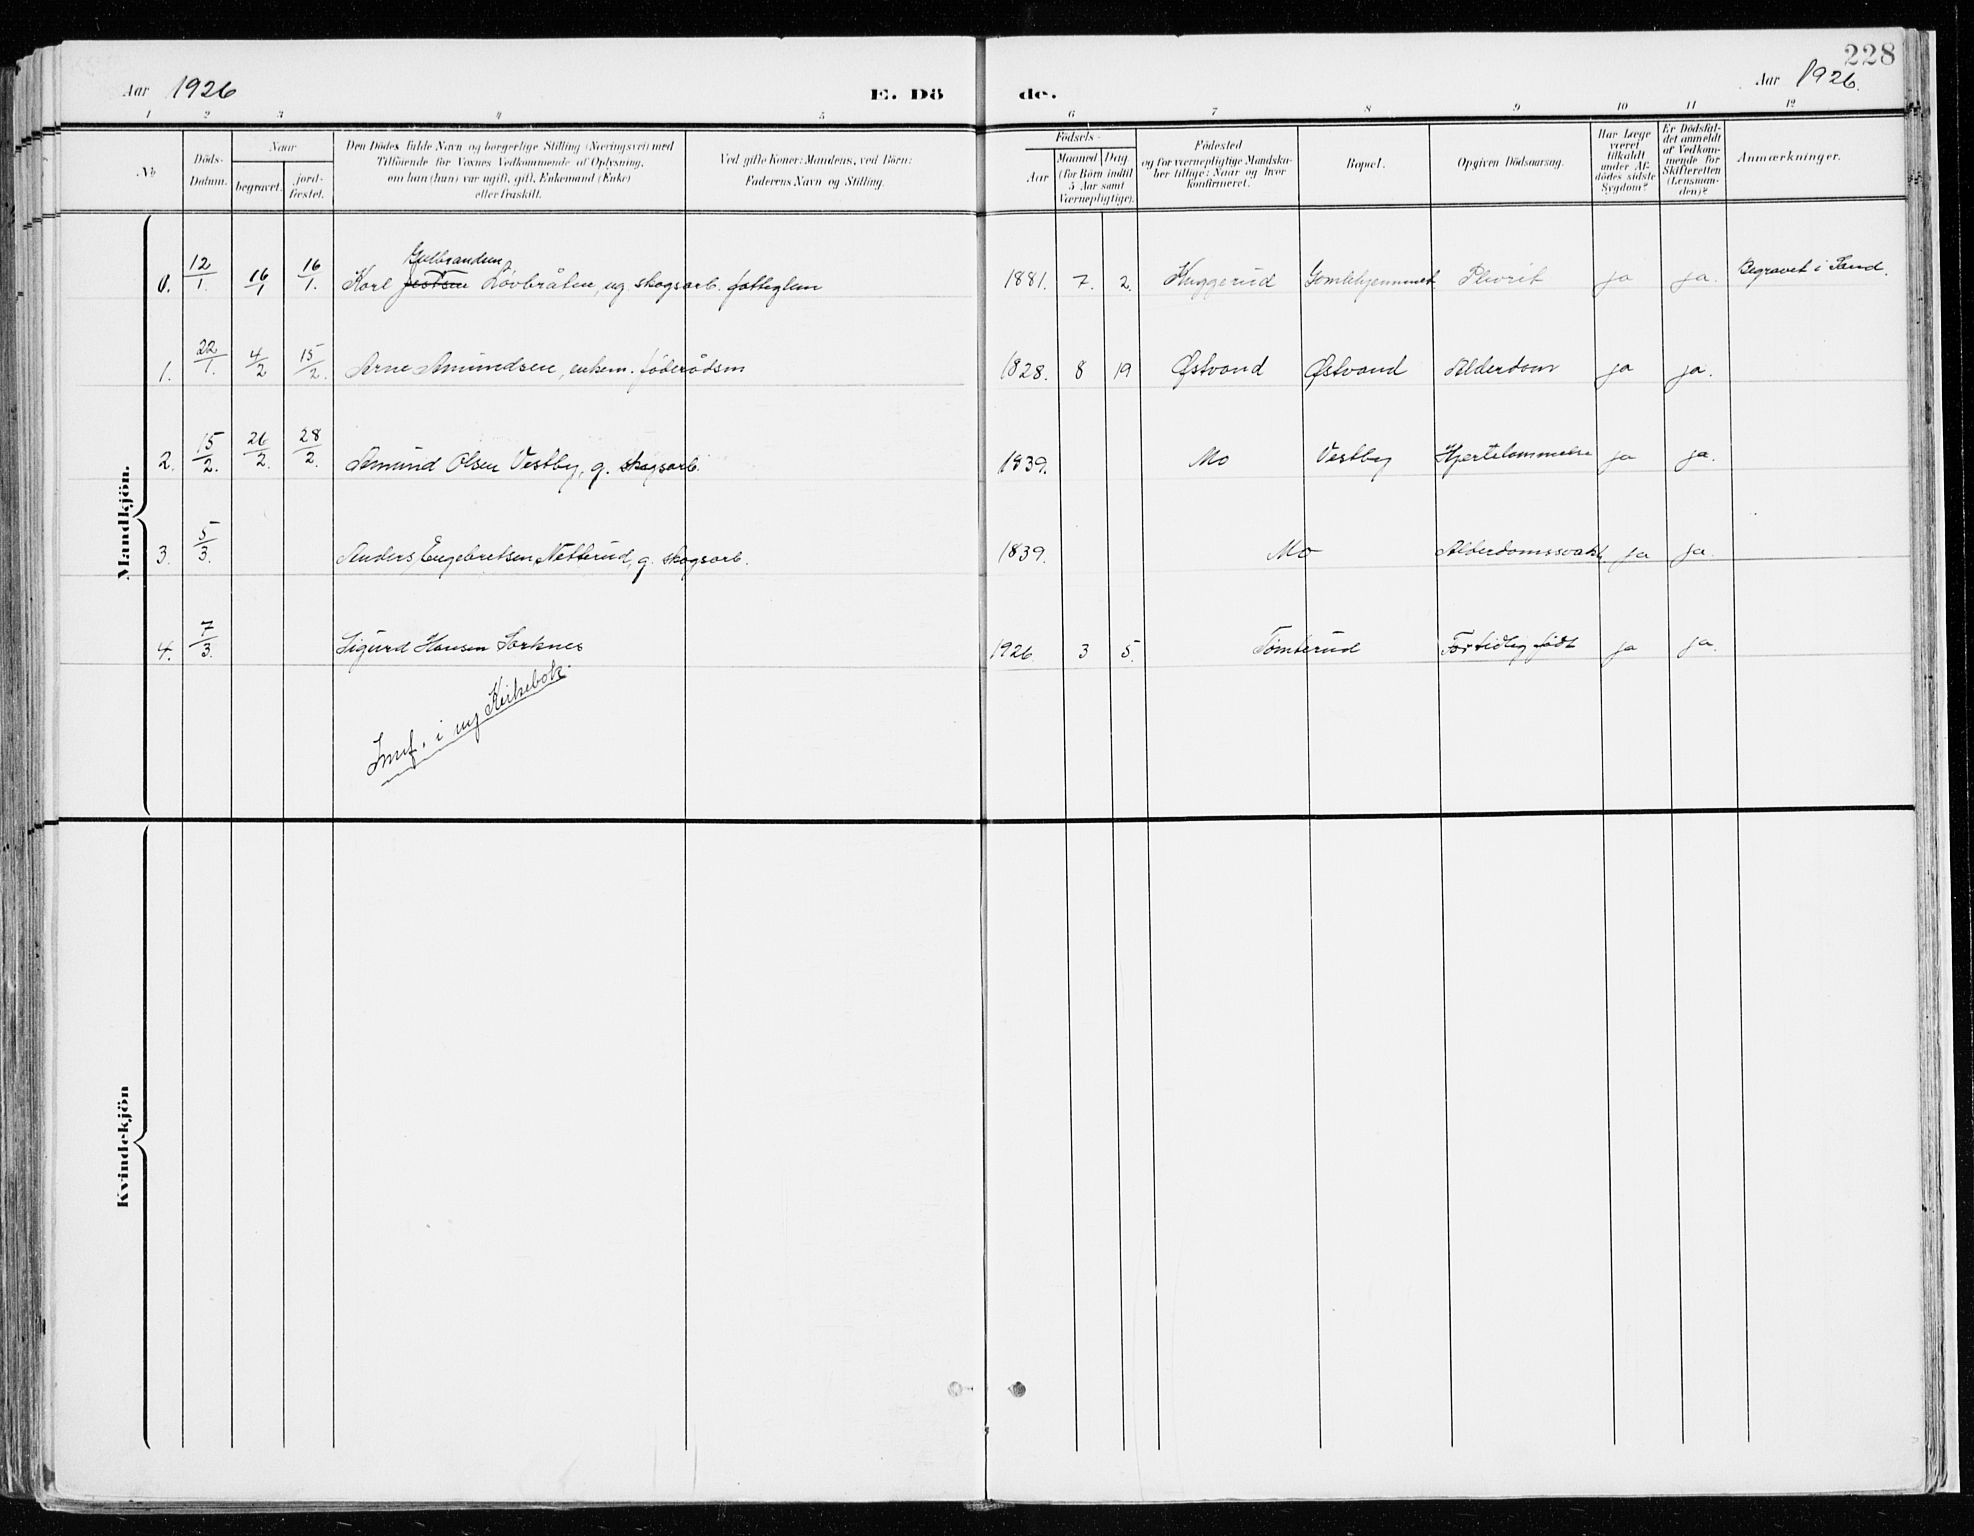 228
Aar 1926
E. Dö
de.
Aar 1926.
1 2 3 4 5 6 7 8 9 10 11 12
No
Döds-
Datum.
Naar
begravet.
jord-
fæstet.
Den Dödes fulde Navn og borgerlige Stilling (Næringsvei) med
Tilföiende for Voxnes Vedkommende af Oplysning,
om han (hun) var ugift, gift, Enkemand (Enke)
eller fraskilt.
Ved gifte Koner: Mandens, ved Börn:
Faderens Navn og Stilling.
Födsels-
Aar
Maaned
Dag
(for Börn indtil
5 Aar samt
Værnepligtige).
Födested
og for værnepligtige Mandska-
ber tillige: Naar og hvor
konfirmeret.
Bopæl.
Opgiven Dödsaarsag.
Har Læge
været
tilkaldt
under Af-
dödes sidste
Sygdom?
Er Dödsfal-
det anmeldt
af Vedkom-
mende for
Skifteretten
(Lensman-
den)?
Anmærkninger.
Mandkjön.
Gulbrandsen
0. 12/1. 16/1 16/1. Karl Løvbråten, ug skogsarb. fattiglem 1881. 7. 2. Kuggerud Gamlehjemmet Plevrit ja ja. Begravet i Sand.
1. 22/1. 4/2 15/2. Arne Amundsen, enkem. føderådsm 1828. 8 19 Østvand Østvand Alderdom ja ja.
2. 15/2. 26/2. 28/2. Amund Olsen Vestby, g. skogsarb. 1839. Mo Vestby Hjertelammelse ja ja.
3. 5/3. Anders Engebretsen Netterud, g. skogsarb. 1839. Mo Alderdomssvakh. ja ja.
4. 7/3. Sigurd Hansen Sorknes 1926. 3 5. Tømterud For tidlig født ja ja.
Innf. i ny Kirkebok.
Kvindekjön